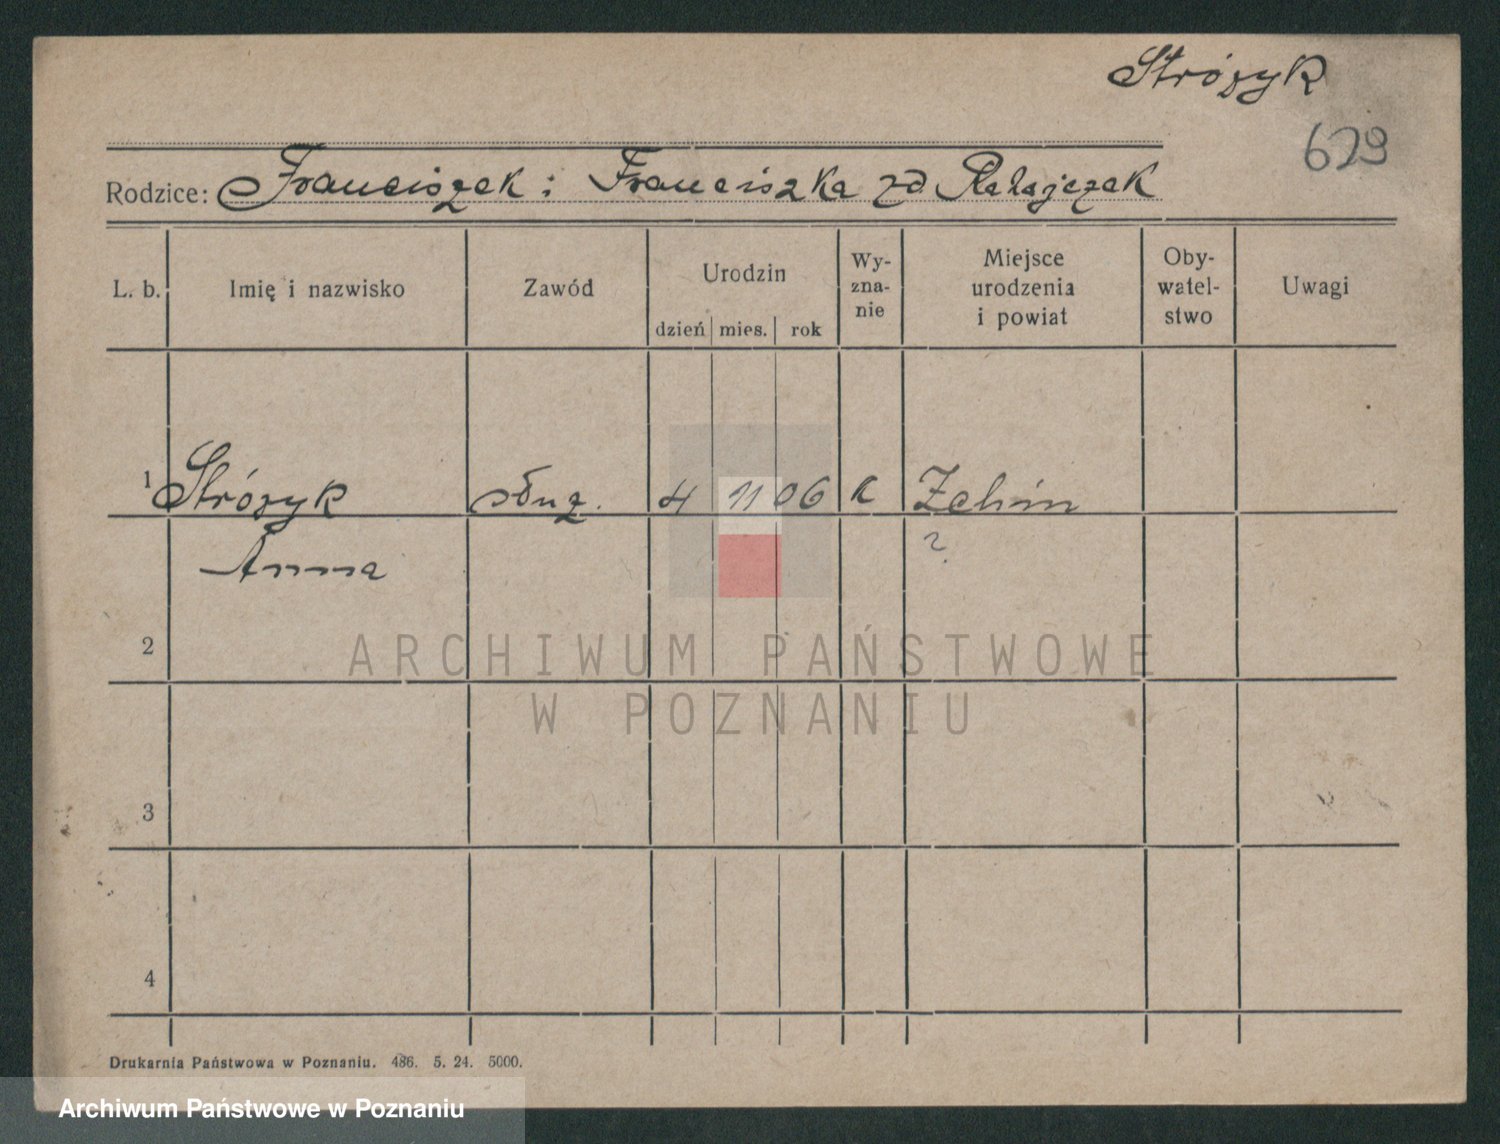 Stróżyk
629
Rodzice: Franciszek i Franciszka zd Ratajczak
L. b. Imię i nazwisko Zawód Urodzin Wy-zna-nie Miejsce urodzenia i powiat Oby-watel-stwo Uwagi
dzień mies. rok
1 Stróżyk służ. 4 11 06 k
?
Anna
2
ARCHIWUM PAŃSTWOWE
W POZNANIU
3
4
Drukarnia Państwowa w Poznaniu. 486. 5. 24. 5000.
Archiwum Państwowe w Poznaniu